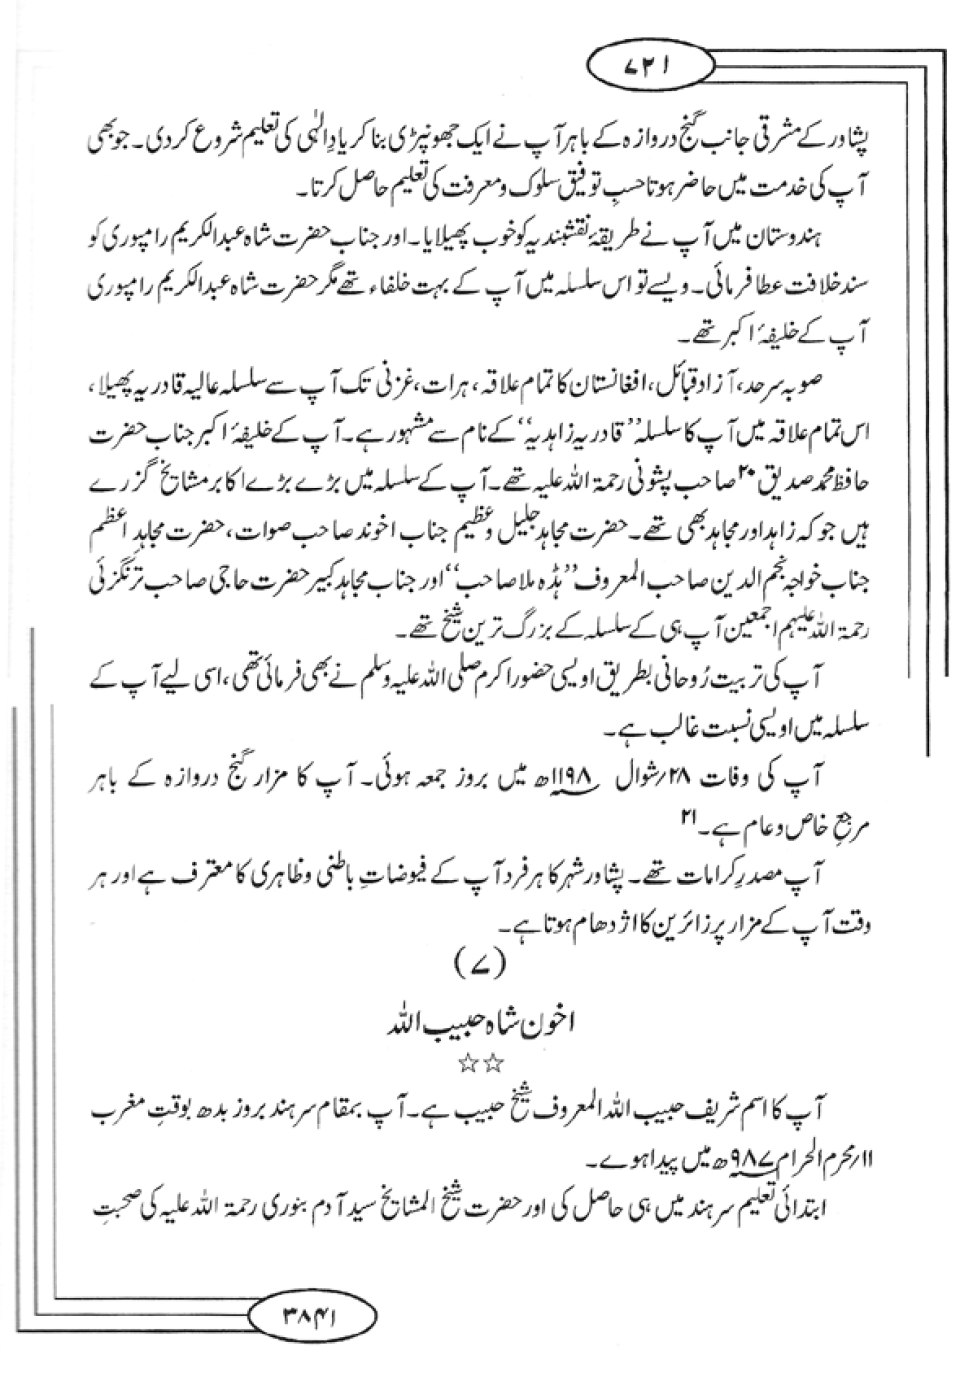 ۷۲۱
پشاور کے مشرقی جانب گنج دروازہ کے باہر آپ نے ایک جھونپڑی بنا کر یادِ الٰہی کی تعلیم شروع کر دی۔ جو بھی
آپ کی خدمت میں حاضر ہوتا حسبِ توفیق سلوک و معرفت کی تعلیم حاصل کرتا۔
ہندوستان میں آپ نے طریقۂ نقشبندیہ کو خوب پھیلایا۔ اور جناب حضرت شاہ عبدالکریم رامپوری کو
سند خلافت عطا فرمائی۔ ویسے تو اس سلسلہ میں آپ کے بہت خلفاء تھے مگر حضرت شاہ عبدالکریم رامپوری
آپ کے خلیفۂ اکبر تھے۔
صوبہ سرحد، آزاد قبائل، افغانستان کا تمام علاقہ، ہرات، غزنی تک آپ سے سلسلہ عالیہ قادریہ پھیلا،
اس تمام علاقہ میں آپ کا سلسلہ ’’قادریہ زاہدیہ‘‘ کے نام سے مشہور ہے۔ آپ کے خلیفۂ اکبر جناب حضرت
حافظ محمد صدیق ۲۰ صاحب پشونی رحمۃ اللہ علیہ تھے۔ آپ کے سلسلہ میں بڑے بڑے اکابر مشایخ گزرے
ہیں جو کہ زاہد اور مجاہد بھی تھے۔ حضرت مجاہد جلیل و عظیم جناب اخوند صاحب صوات، حضرت مجاہدِ اعظم
جناب خواجہ نجم الدین صاحب المعروف ’’ہڈہ ملا صاحب‘‘ اور جناب مجاہد کبیر حضرت حاجی صاحب ترنگزئی
رحمۃ اللہ علیہم اجمعین آپ ہی کے سلسلہ کے بزرگ ترین شیخ تھے۔
آپ کی تربیت رُوحانی بطریق اویسی حضور اکرم صلی اللہ علیہ وسلم نے بھی فرمائی تھی، اسی لیے آپ کے
سلسلہ میں اویسی نسبت غالب ہے۔
آپ کی وفات ۲۸/شوال ۱۱۹۸ھ میں بروز جمعہ ہوئی۔ آپ کا مزار گنج دروازہ کے باہر
مرجعِ خاص و عام ہے۔ ۲۱
آپ مصدرِ کرامات تھے۔ پشاور شہر کا ہر فرد آپ کے فیوضاتِ باطنی و ظاہری کا معترف ہے اور ہر
وقت آپ کے مزار پر زائرین کا اژدھام ہوتا ہے۔
(۷)
اخون شاہ حبیب اللہ
☆☆
آپ کا اسم شریف حبیب اللہ المعروف شیخ حبیب ہے۔ آپ بمقام سرہند بروز بدھ بوقتِ مغرب
۱۱/محرم الحرام ۹۸۷ھ میں پیدا ہوے۔
ابتدائی تعلیم سرہند میں ہی حاصل کی اور حضرت شیخ المشایخ سید آدم بنوری رحمۃ اللہ علیہ کی صحبتِ
۳۸۴۱